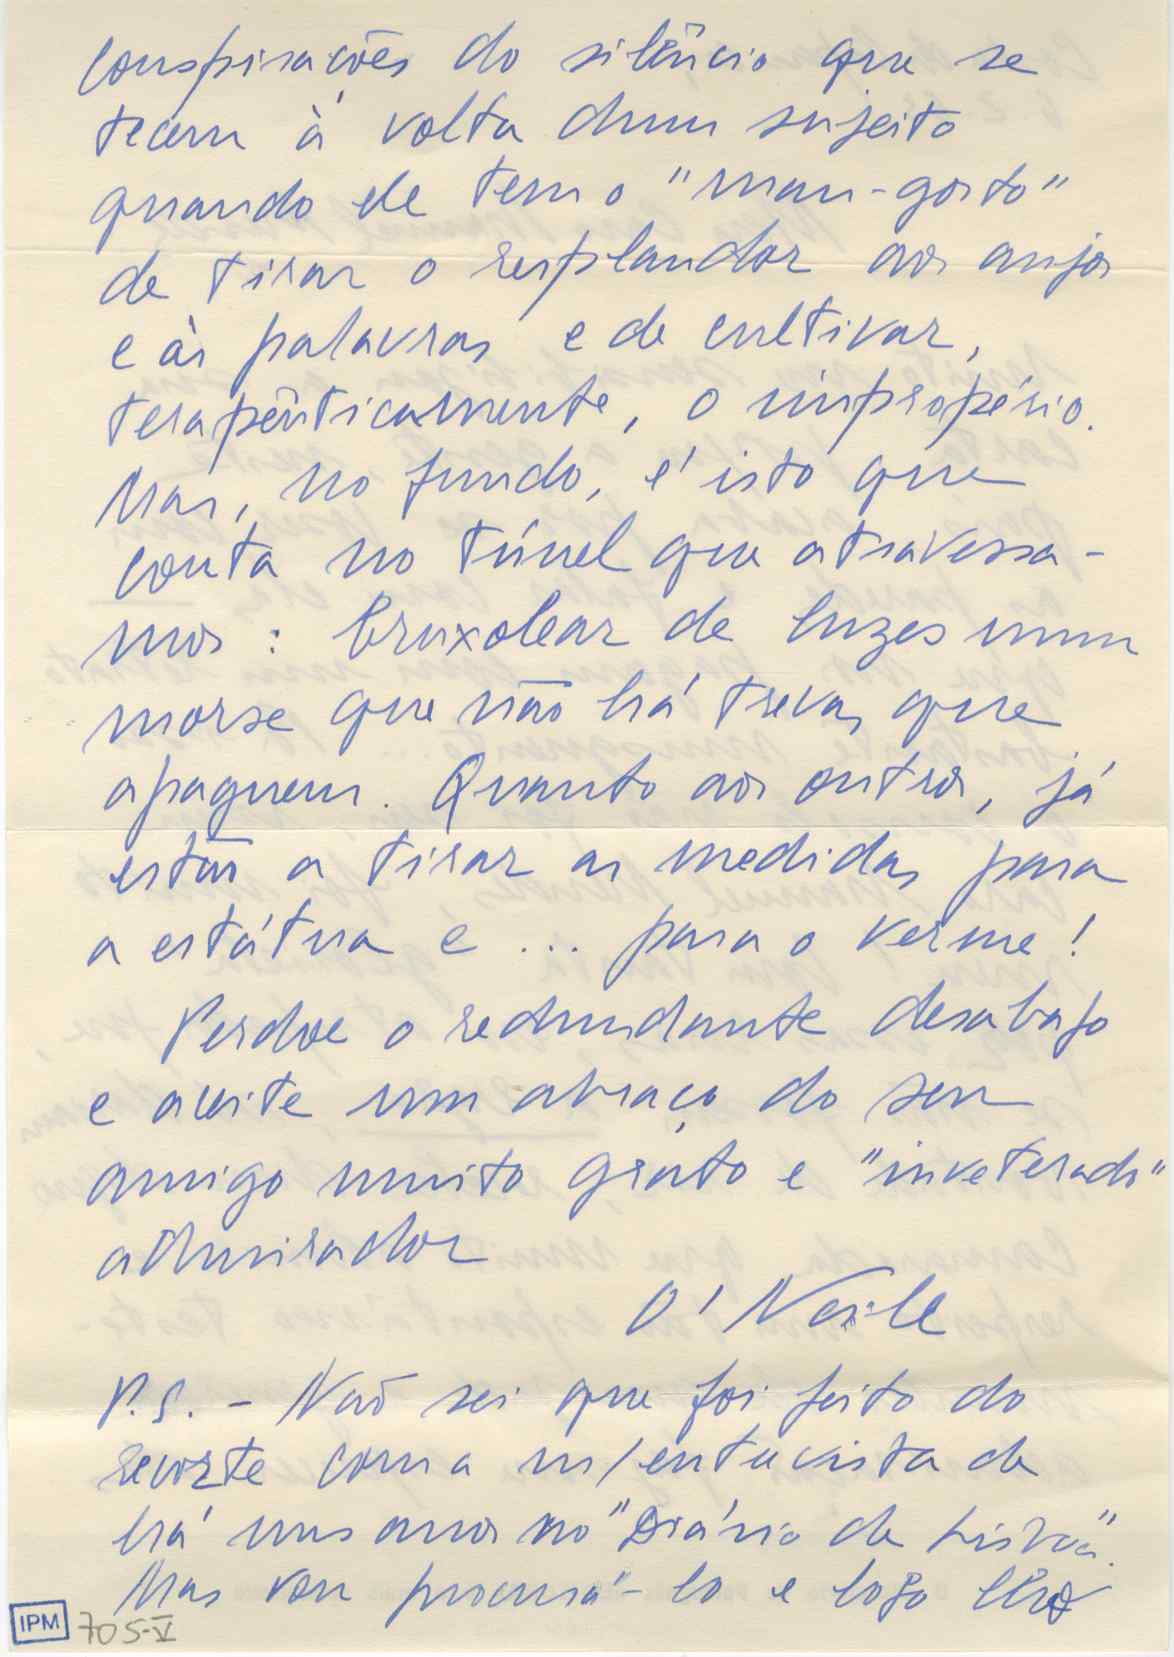 conspirações do silêncio que se
tecem à volta dum sujeito
quando ele tem o "mau-gosto"
de tirar o resplandor aos anjos
e às palavras e de cultivar,
terapêuticamente, o impropério.
Mas, no fundo, é isto que
conta no túnel que atravessa-
mos: bruxolear de luzes num
morse que não há trevas que
apaguem. Quanto aos outros, já
estão a tirar as medidas para
a estátua e ... para o verme!
Perdoe o redundante desabafo
e aceite um abraço do seu
amigo muito grato e "inveterado"
admirador
O'Neill
P.S. - Não sei que foi feito do
recorte com a m/entrevista de
há uns anos no "Diário de Lisboa".
Mas vou procurá-lo e logo lho
IPM 705-V